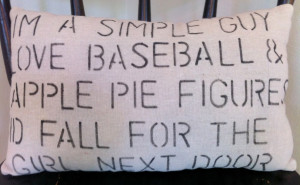 IM A SIMPLE GUY
LOVE BASEBALL &
APPLE PIE FIGURES
ID FALL FOR THE
GIRL NEXT DOOR